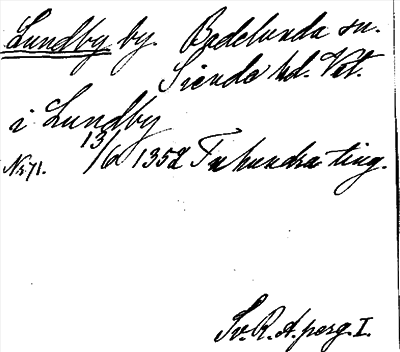 Lundby by. Badelunda sn.
Siende hd. Vstm.
i Lundby
13/6 1352 Tuhundra ting.
Nr. 71.
Sv. R. A. perg. I.